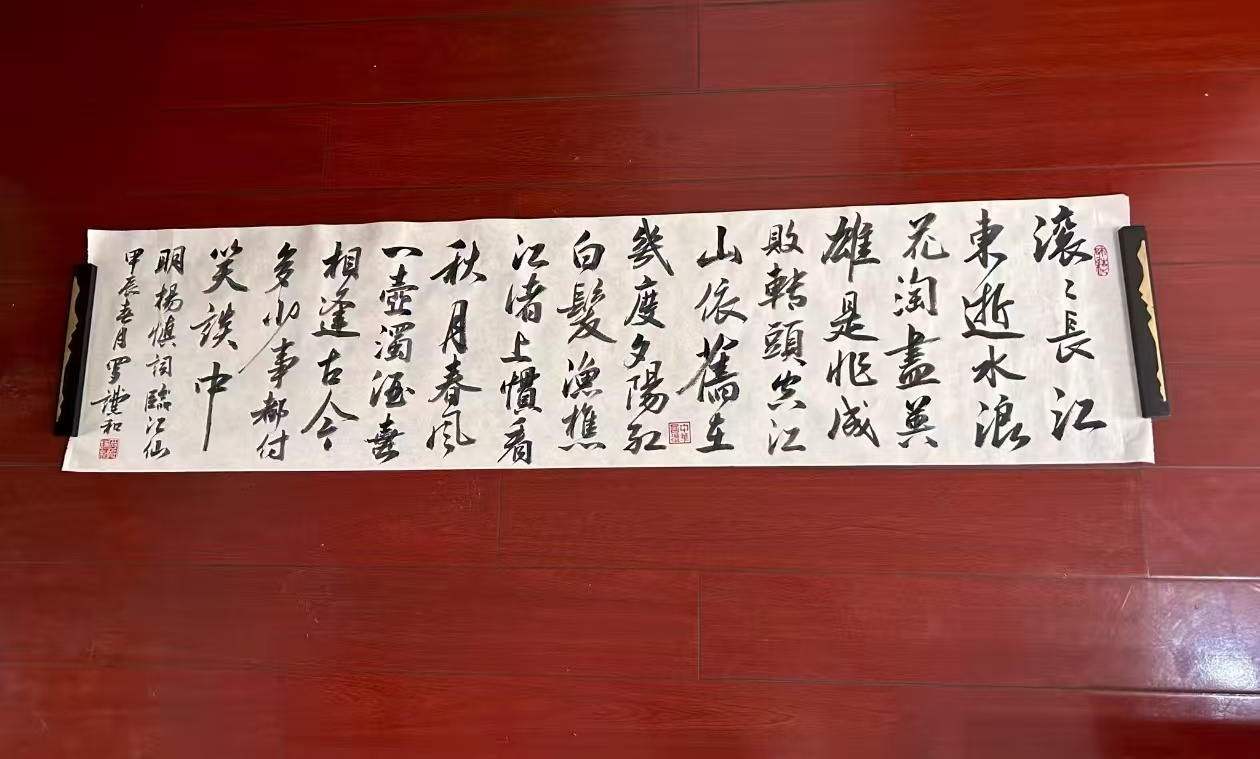 滚〻長江
東逝水浪
花淘盡英
雄是非成
敗轉頭空江
山依舊在
幾度夕陽紅
白髮漁樵
江渚上慣看
秋月春風
一壺濁酒喜
相逢古今
多少事都付
笑談中
明楊慎詞臨江仙
甲辰春月罗和